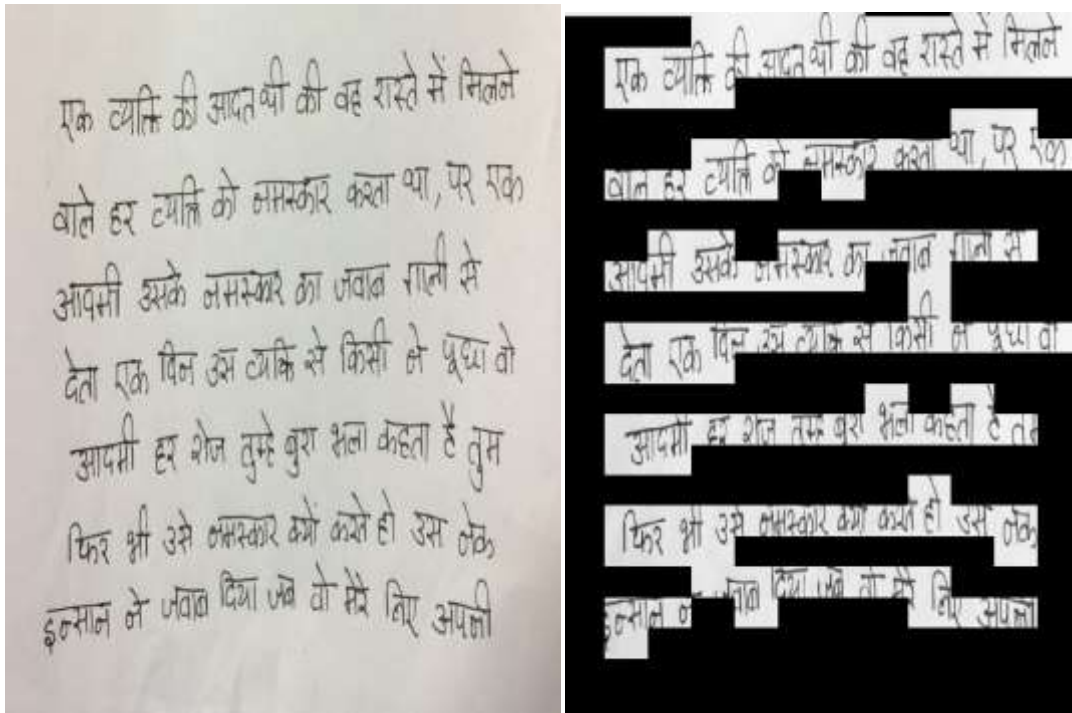 एक व्यक्ति की आदत थी की वह रास्ते में मिलने
वाले हर व्यक्ति को नमस्कार करता था, पर एक
आदमी उसके नमस्कार का जवाब गाली से
देता एक दिन उस व्यक्ति से किसी ने पूछा वो
आदमी हर रोज तुम्हे बुरा भला कहता है तुम
फिर भी उसे नमस्कार क्यों करते हो उस नेक
इन्सान ने जवाब दिया जब वो मेरे लिए अपनी
एक व्यक्ति की आदत थी की वह रास्ते में मिलने
वाले हर व्यक्ति को नमस्कार करता था, पर एक
आदमी उसके नमस्कार का जवाब गाली से
देता एक दिन उस व्यक्ति से किसी ने पूछा वो
आदमी हर रोज तुम्हे बुरा भला कहता है तुम
फिर भी उसे नमस्कार क्यों करते हो उस नेक
इन्सान ने जवाब दिया जब वो मेरे लिए अपनी